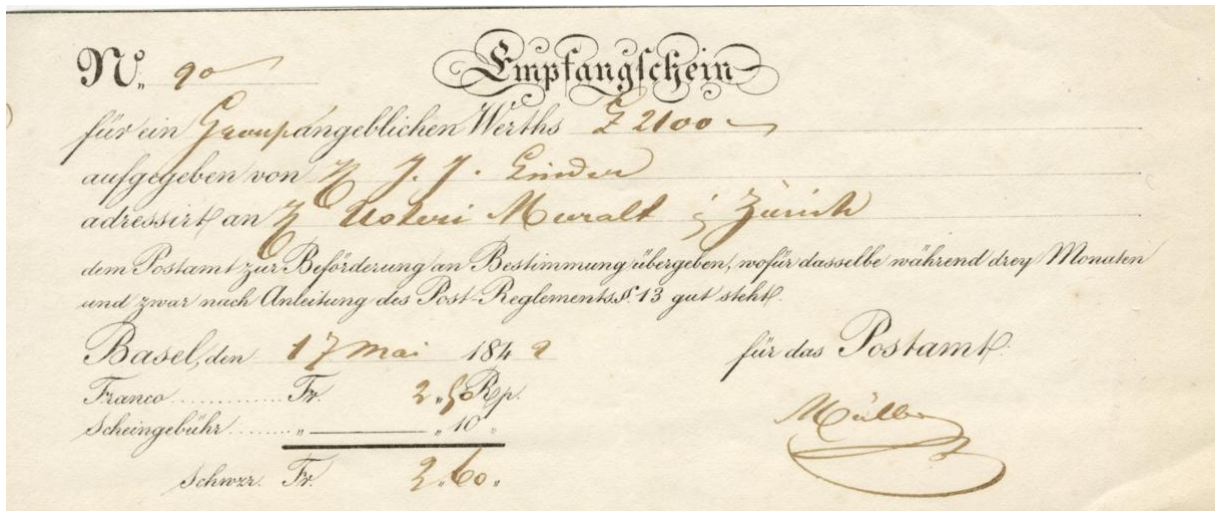 N„ 90 Empfangschein
für ein Group angeblichen Werths £ 2100
aufgegeben von H J. J. Linder
adressirt an H Usteri Muralt i Zürich
dem Postamt zur Beförderung an Bestimmung übergeben, wofür dasselbe während drey Monaten
und zwar nach Anleitung des Post-Reglements §. 13 gut steht.
Basel, den 17 Mai 1842 für das Postamt.
Franco Fr. 2„ 5 Rp.
Scheingebühr „ — „ 10 „
Müller
Schwzr. Fr. 2„ 60„